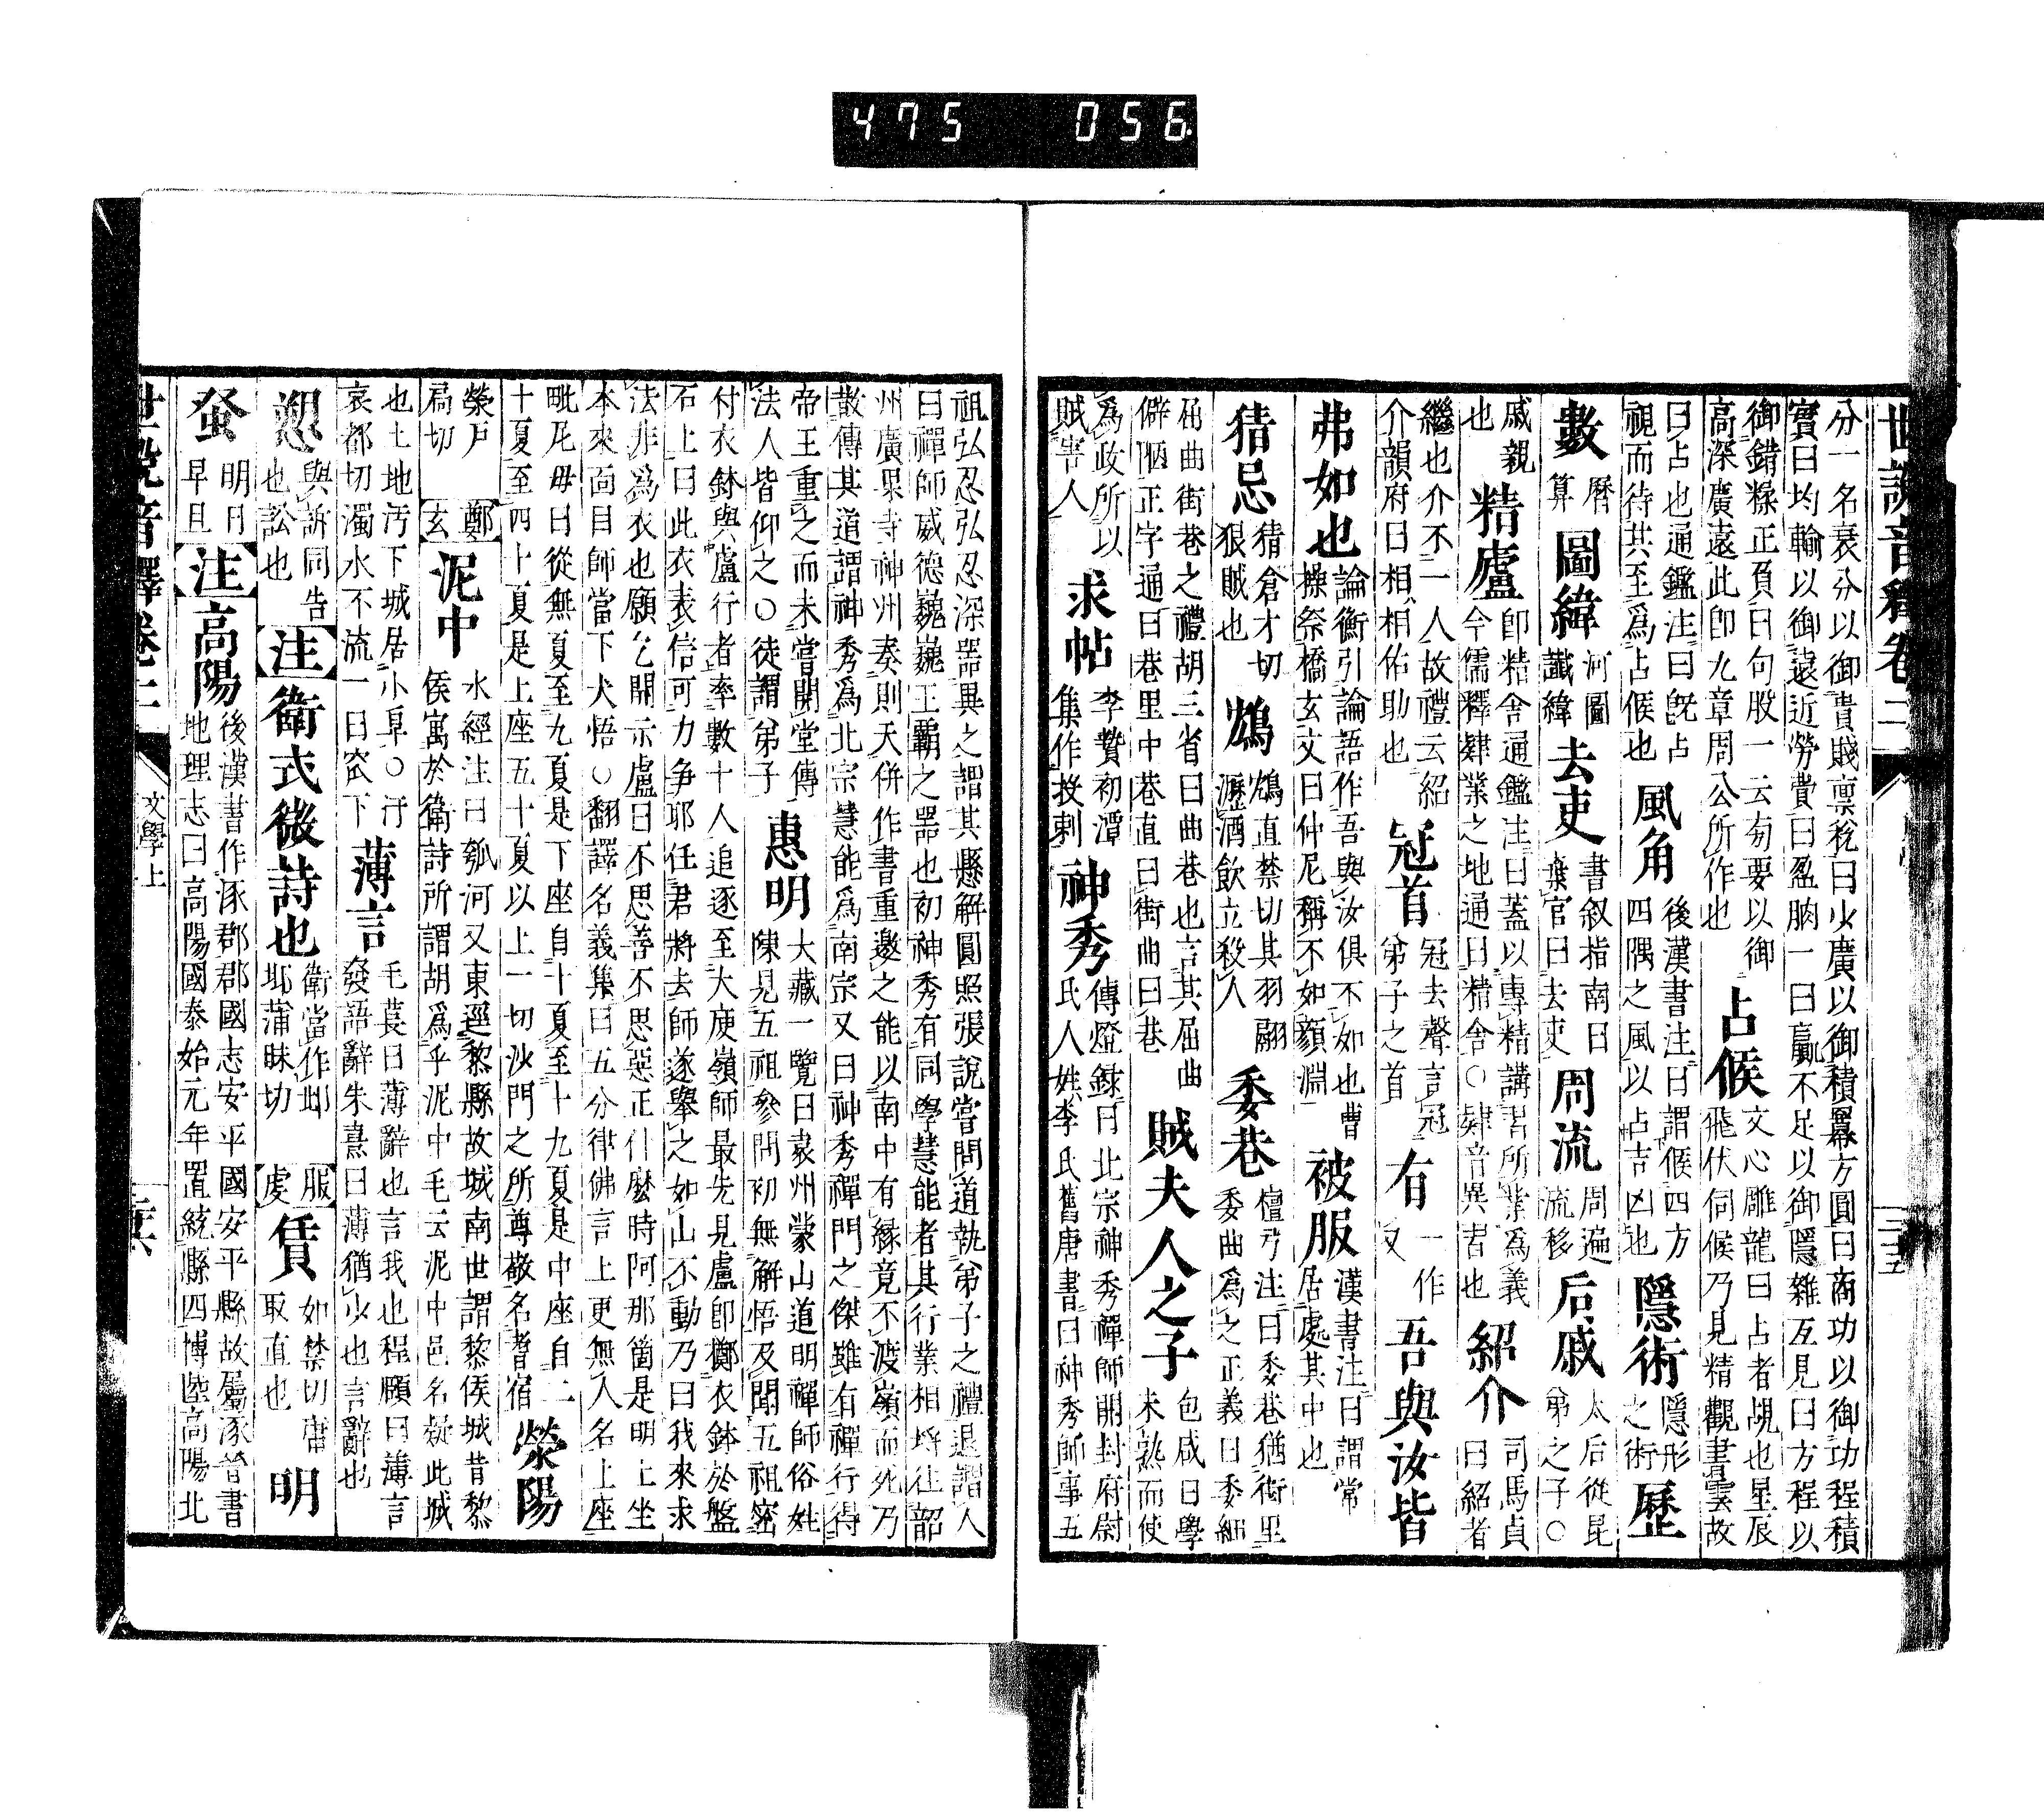 475 056
世說音釋卷二
三十五
分一名衰分以御貴賤禀稅曰少廣以御積羃方圓曰商功以御功程積
實曰均輸以御遠近勞費曰盈朒一曰贏不足以御隱雜互見曰方程以
御錯糅正負曰句股一云旁要以御
高深廣遠此即九章周公所作也
占候
文心雕龍曰占者覘也星辰
飛伏伺候乃見精觀書雲故
曰占也通鑑注曰旣占
視而待其至爲占候也
風角
後漢書注曰謂候四方
四隅之風以占吉凶也
隱術
隱形
之術
歷
數
曆
算
圖緯
河圖
讖緯
去吏
書叙指南曰
棄官曰去吏
周流
周遍
流移
后戚
太后從昆
弟之子○
戚親
也
精廬
即精舍通鑑注曰蓋以專精講習所業爲義
今儒釋肄業之地通曰精舍○肄音異習也
紹介
司馬貞
曰紹者
繼也介不一人故禮云紹
介韻府曰相相佑助也
冠首
冠去聲言冠
弟子之首
有
一作
又
吾與汝皆
弗如也
論衡引論語作吾與汝俱不如也曹
操祭橋玄文曰仲尼稱不如顏淵
被服
漢書注曰謂常
居處其中也
猜忌
猜倉才切
狠賊也
鴆
鴆直禁切其羽翮
瀝酒飲立殺人
委巷
檀弓注曰委巷猶街里
委曲爲之正義曰委細
屈曲街巷之禮胡三省曰曲巷也言其屈曲
僻陋正字通曰巷里中巷直曰街曲曰巷
賊夫人之子
包咸曰學
未熟而使
爲政所以
賊害人
求帖
李贄初潭
集作投刺
神秀
傳燈錄曰北宗神秀禪師開封府尉
氏人姓李氏舊唐書曰神秀師事五
祖弘忍弘忍深器異之謂其縣解圓照張說嘗問道執弟子之禮退謂人
曰禪師威德巍巍王霸之器也初神秀有同學慧能者其行業相埓往韶
州廣果寺神州奏則天併作書重邀之能以南中有緣竟不渡嶺而死乃
散傳其道謂神秀爲北宗慧能爲南宗又曰神秀禪門之傑雖有禪行得
帝王重之而未嘗開堂傳
法人皆仰之○徒謂弟子
惠明
大藏一覽曰袁州蒙山道明禪師俗姓
陳見五祖參問初無解悟及聞五祖密
付衣鉢與盧行者率數十人追逐至大庾嶺師最先見盧即擲衣鉢於盤
石上曰此衣表信可力爭耶任君將去師遂舉之如山不動乃曰我來求
法非爲衣也願公開示盧曰不思善不思惡正什麽時阿那箇是明上坐
本來面目師當下大悟○翻譯名義集曰五分律佛言上更無人名上座
毗尼毋曰從無夏至九夏是下座自十夏至十九夏是中座自二
十夏至四十夏是上座五十夏以上一切沙門之所尊敬名耆宿
滎陽
滎戶
扃切
鄭
玄
泥中
水經注曰瓠河又東逕黎縣故城南世謂黎侯城昔黎
侯寓於衛詩所謂胡爲乎泥中毛云泥中邑名疑此城
也土地汚下城居小阜○汙
哀都切濁水不流一曰窊下
薄言
毛萇曰薄辭也言我也程頤曰薄言
發語辭朱熹曰薄猶少也言辭也
愬
與訴同告
也訟也
注
衛式微詩也
衛當作邶
邶蒲昧切
服
虔
賃
如禁切庸
取直也
明
蚤
明日
早旦
注
高陽
後漢書作涿郡郡國志安平國安平縣故屬涿晉書
地理志曰高陽國泰始元年置統縣四博陸高陽北
世說音釋卷二
文學上
三十六